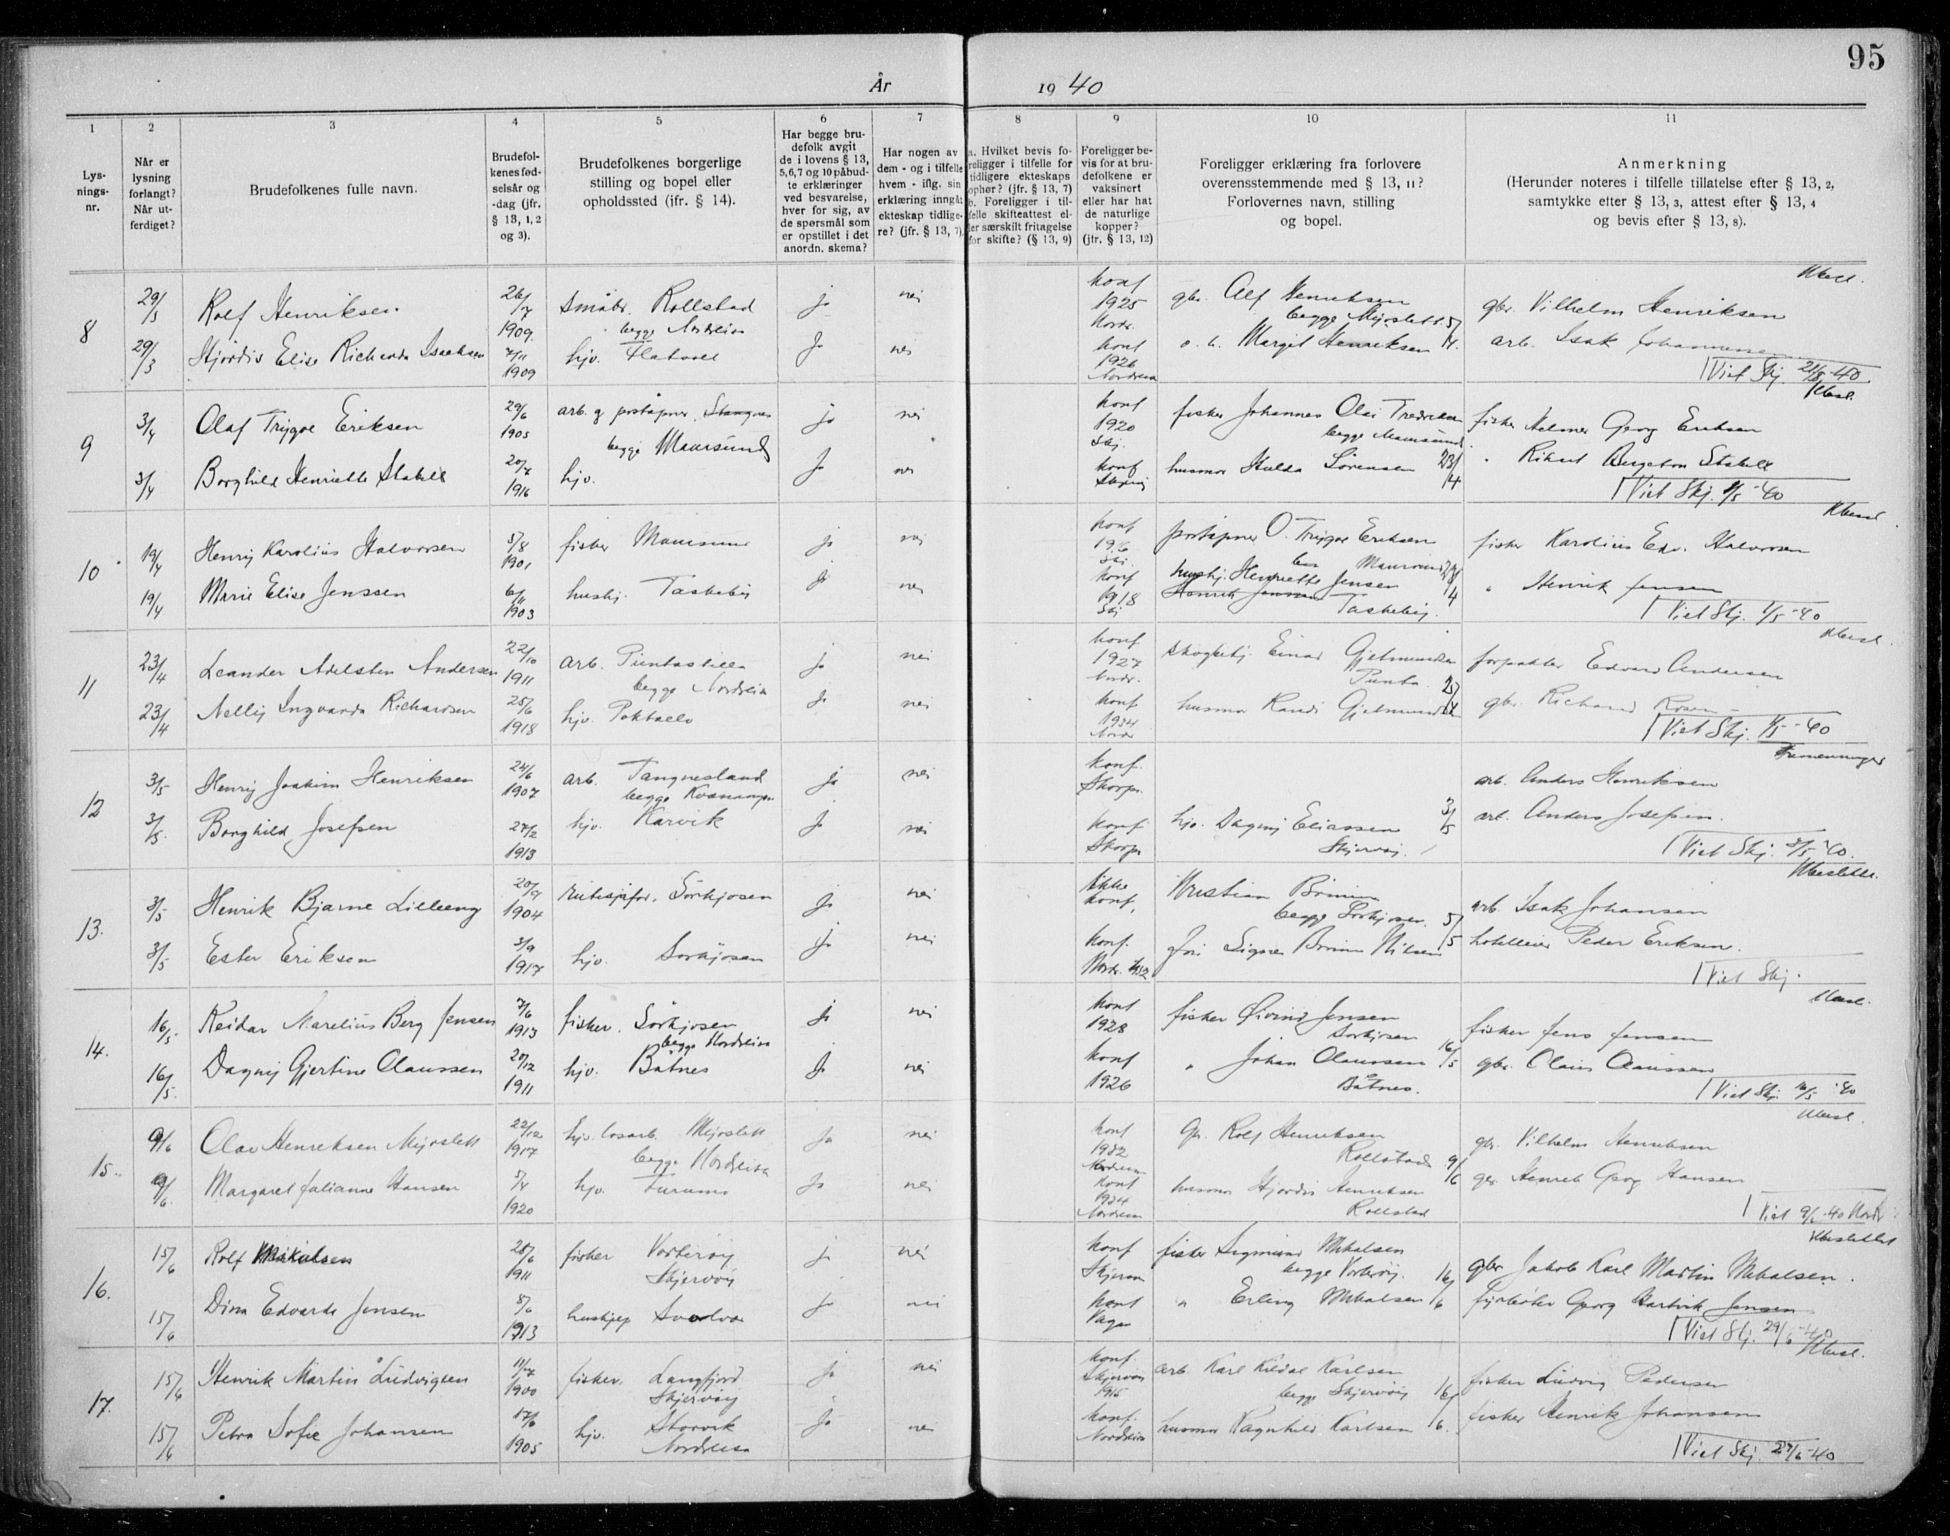 95
År 19 40
1 2 3 4 5 6 7 8 9 10 11
Lys-
nings-
nr.
Når er
lysning
forlangt?
Når ut-
ferdiget?
Brudefolkenes fulle navn.
Brudefol-
kenes fød-
selsår og
-dag (jfr.
§ 13, 1, 2
og 3).
Brudefolkenes borgerlige
stilling og bopel eller
opholdssted (jfr. § 14).
Har begge bru-
defolk avgit
de i lovens § 13,
5,6,7 og 10 påbud-
te erklæringer
ved besvarelse,
hver for sig, av
de spørsmål som
er opstillet i det
anordn. skema?
Har nogen av
dem - og i tilfelle
hvem - iflg. sin
erklæring inngåt
ekteskap tidlige-
re? (jfr. § 13, 7)
a. Hvilket bevis fo-
religger i tilfelle for
tidligere ekteskaps
ophør? (jfr. § 13, 7)
b. Foreligger i til-
felle skifteattest el-
ler særskilt fritagelse
for skifte? (§ 13, 9)
Foreligger be-
vis for at bru-
defolkene er
vaksinert
eller har hat
de naturlige
kopper?
(jfr. § 13, 12)
Foreligger erklæring fra forlovere
overensstemmende med § 13, 11?
Forlovernes navn, stilling
og bopel.
Anmerkning
(Herunder noteres i tilfelle tillatelse efter § 13, 2,
samtykke efter § 13, 3, attest efter § 13, 4
og bevis efter § 13, 8).
8
29/3 Rolf Henriksen 26/7 1909. småbr. Rollstad ja nei konf 1925 Nordr. gbr. Alf Henriksen gbr. Vilhelm Henriksen
begge Nordreisa
29/3 Hjørdis Elise Richarda Isaksen 7/11 1909 hjv. Flatvoll ja nei konf 1926 Nordreisa Margit Henriksen arb. Isak Johannessen
Viet Skj.
9
3/4 Olaf Trygve Eriksen 29/6 1905 arb. og poståpner. Stangnes ja nei konf 1920 Skj. fisker Johannes Olai fisker Georg Eriksen
begge Maursund
3/4 Borghild Henriette Stabell 20/7 1916 hjv. ja nei konf husmor Hulda Sørensen 23/4 Stabell
Viet Skj. 1/5 -40
10
19/4 Henry Karolius Halvorsen 5/8 1901 fisker Maursund ja nei konf Skj. poståpner O. Trygve Eriksen fisker Karolius Edv. Halvorsen
19/4 Marie Elise Jenssen 6/11 1903 hushj. Taskeby ja nei konf 1918 Skj hushj. Henriette Jensen " Henrik Jensen
Taskeby.
Viet Skj. 1/5 -40
11
23/4 Leander Adelsten Andersen 22/10 1911 arb. Puntastilla ja nei konf 1927 Nordr. skogbetj. Einar Gjetmundsen forpakter Edvard Andersen
begge Nordreisa Punta
23/4 Nelly Ingvarda Richardsen 25/6 1918 hjv. ja nei konf 1934 Nordr husmor Randi Gjetmundsen gbr. Richard
Viet Skj. 1/5 -40
12
3/5 Henry Joakim Henriksen 24/6 1907 arb. Tangnesland ja nei konf. arb. Anders Henriksen
begge Kvænangen
3/5. Borghild Josefsen 27/2 1913 hjv. Karvik ja nei konf hjv. Dagny Eliassen 3/5 arb. Anders Josefsen.
Skjervøy.
Viet Skj. 3/5 '40.
13.
3/5 Henrik Bjarne Lilleeng 20/9 1904 Sørkjosen ja nei ikke konf. Kristian arb. Isak Johansen
begge Sørkjosen.
3/5 Ester Eriksen 3/9 1917 hjv. Sørkjosen ja nei konf. Nordr. 1932 Signe Nilsen hotelleier Peder Eriksen.
Viet Skj.
14.
16/5 Reidar Marelius Berg Jensen 7/6 1913 fisker. Sørkjosen ja nei konf 1928 fisker Øivind Jensen fisker Jens Jensen
begge Nordreisa Sørkjosen 16/5
16/5. Dagny Gjertine Olaussen 27/12 1911 hjv. Båtnes ja nei konf 1926 " Johan Olaussen gbr. Olaus Olaussen
Båtnes.
Viet Skj. 16/5 '40
15.
9/6 Olav Henriksen Myrslett 22/12 1917 Myrslett ja nei konf 1932 Nordreisa Gbr. Rolf Henriksen gbr. Vilhelm Henriksen
begge Nordreisa Rollstad 9/6
9/6. Margaret Julianne Hansen 5/4 1920 hjv. Furumo ja nei konf 1934 Nordreisa husmor Hjørdis Henriksen gbr. Henrik Georg Hansen
Rollstad
Viet 9/6 -40 Nordr.
16.
15/6 Rolf Mikalsen 25/6 1911 fisker Vorterøy ja nei konf Skjervøy fisker Sigmund Mikalsen gbr Jakob Karl Martin Mikalsen.
Skjervøy begge Vorterøy. 16/6
15/6 Dina Edvarda Jensen 8/6 1913 hushjelp Svolvær ja nei konf Vågan " Erling Mikalsen fyrbøter Georg Hartvik Jensen
Viet Skj. 29/6 -40
17.
15/6 Henrik Martin Ludvigsen 1900 fisker. Langfjord ja nei konf. Skjervøy 1915 arb. Karl Kildal Karlsen fisker Ludvig Pedersen
Skjervøy begge Skjervøy 16/6.
15/6 Petra Sofie Johansen 17/6 1905 hjv. Storvik ja nei konf. Nordreisa husmor Ragnhild Karlsen fisker Henrik Johansen
Nordreisa
Viet Skj. 27/6 -40